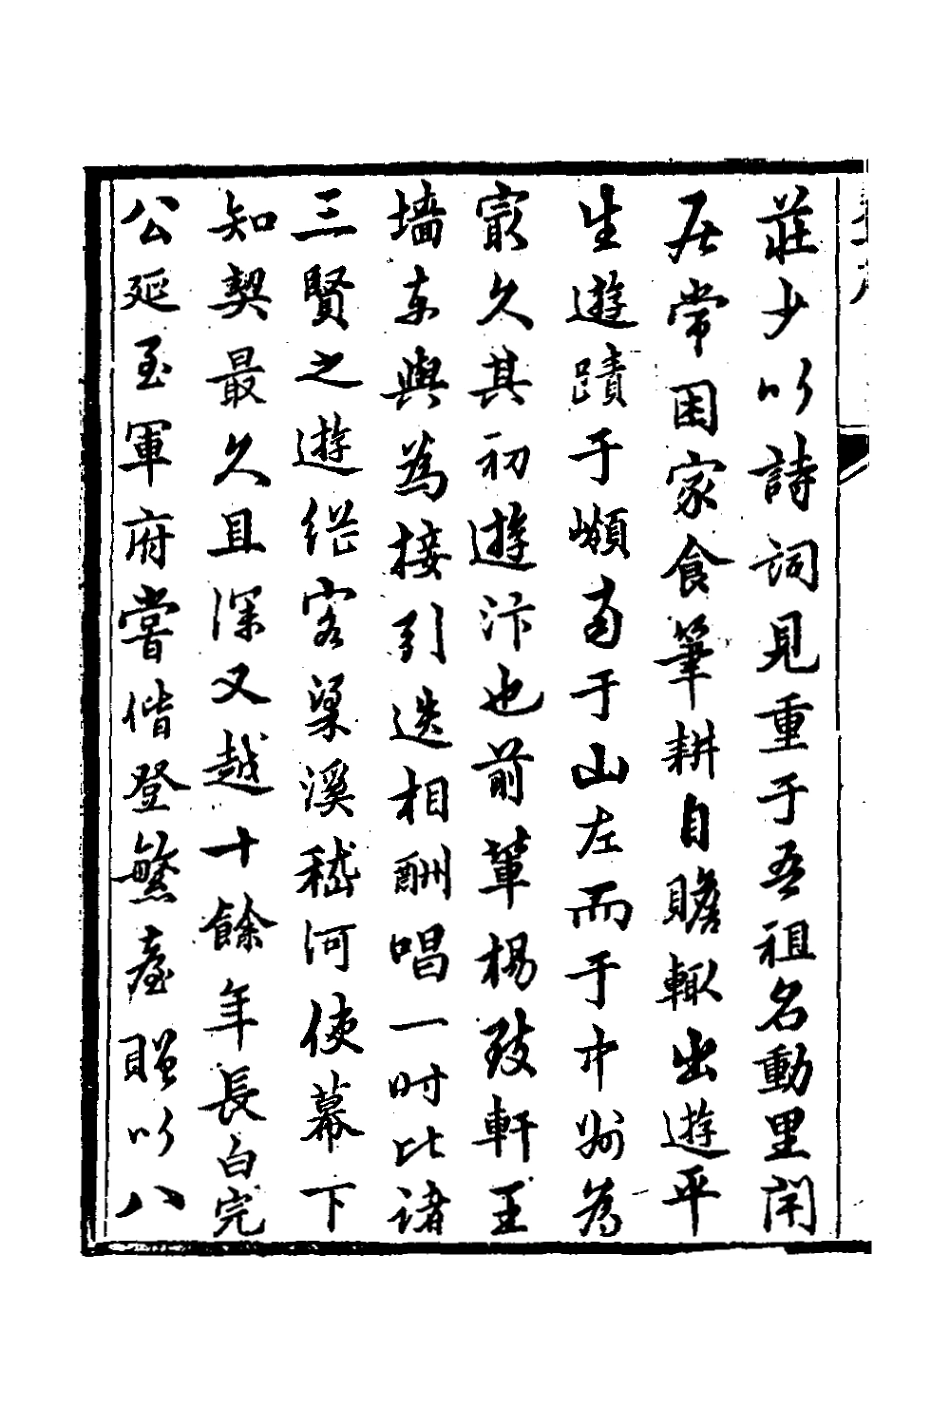 莊少以詩詞見重于吾祖名動里閈
居常困家食筆耕自贍輙出遊平
生遊蹟于嶺南于山左而于中州為
寂久其初遊汴也前輩楊致軒王
墙東輿為接引迭相酬唱一时比諸
三賢之遊继客梁溪嵇河使幕下
知契最久且深又越十餘年長白完
公延至軍府嘗偕登繁臺贈以八